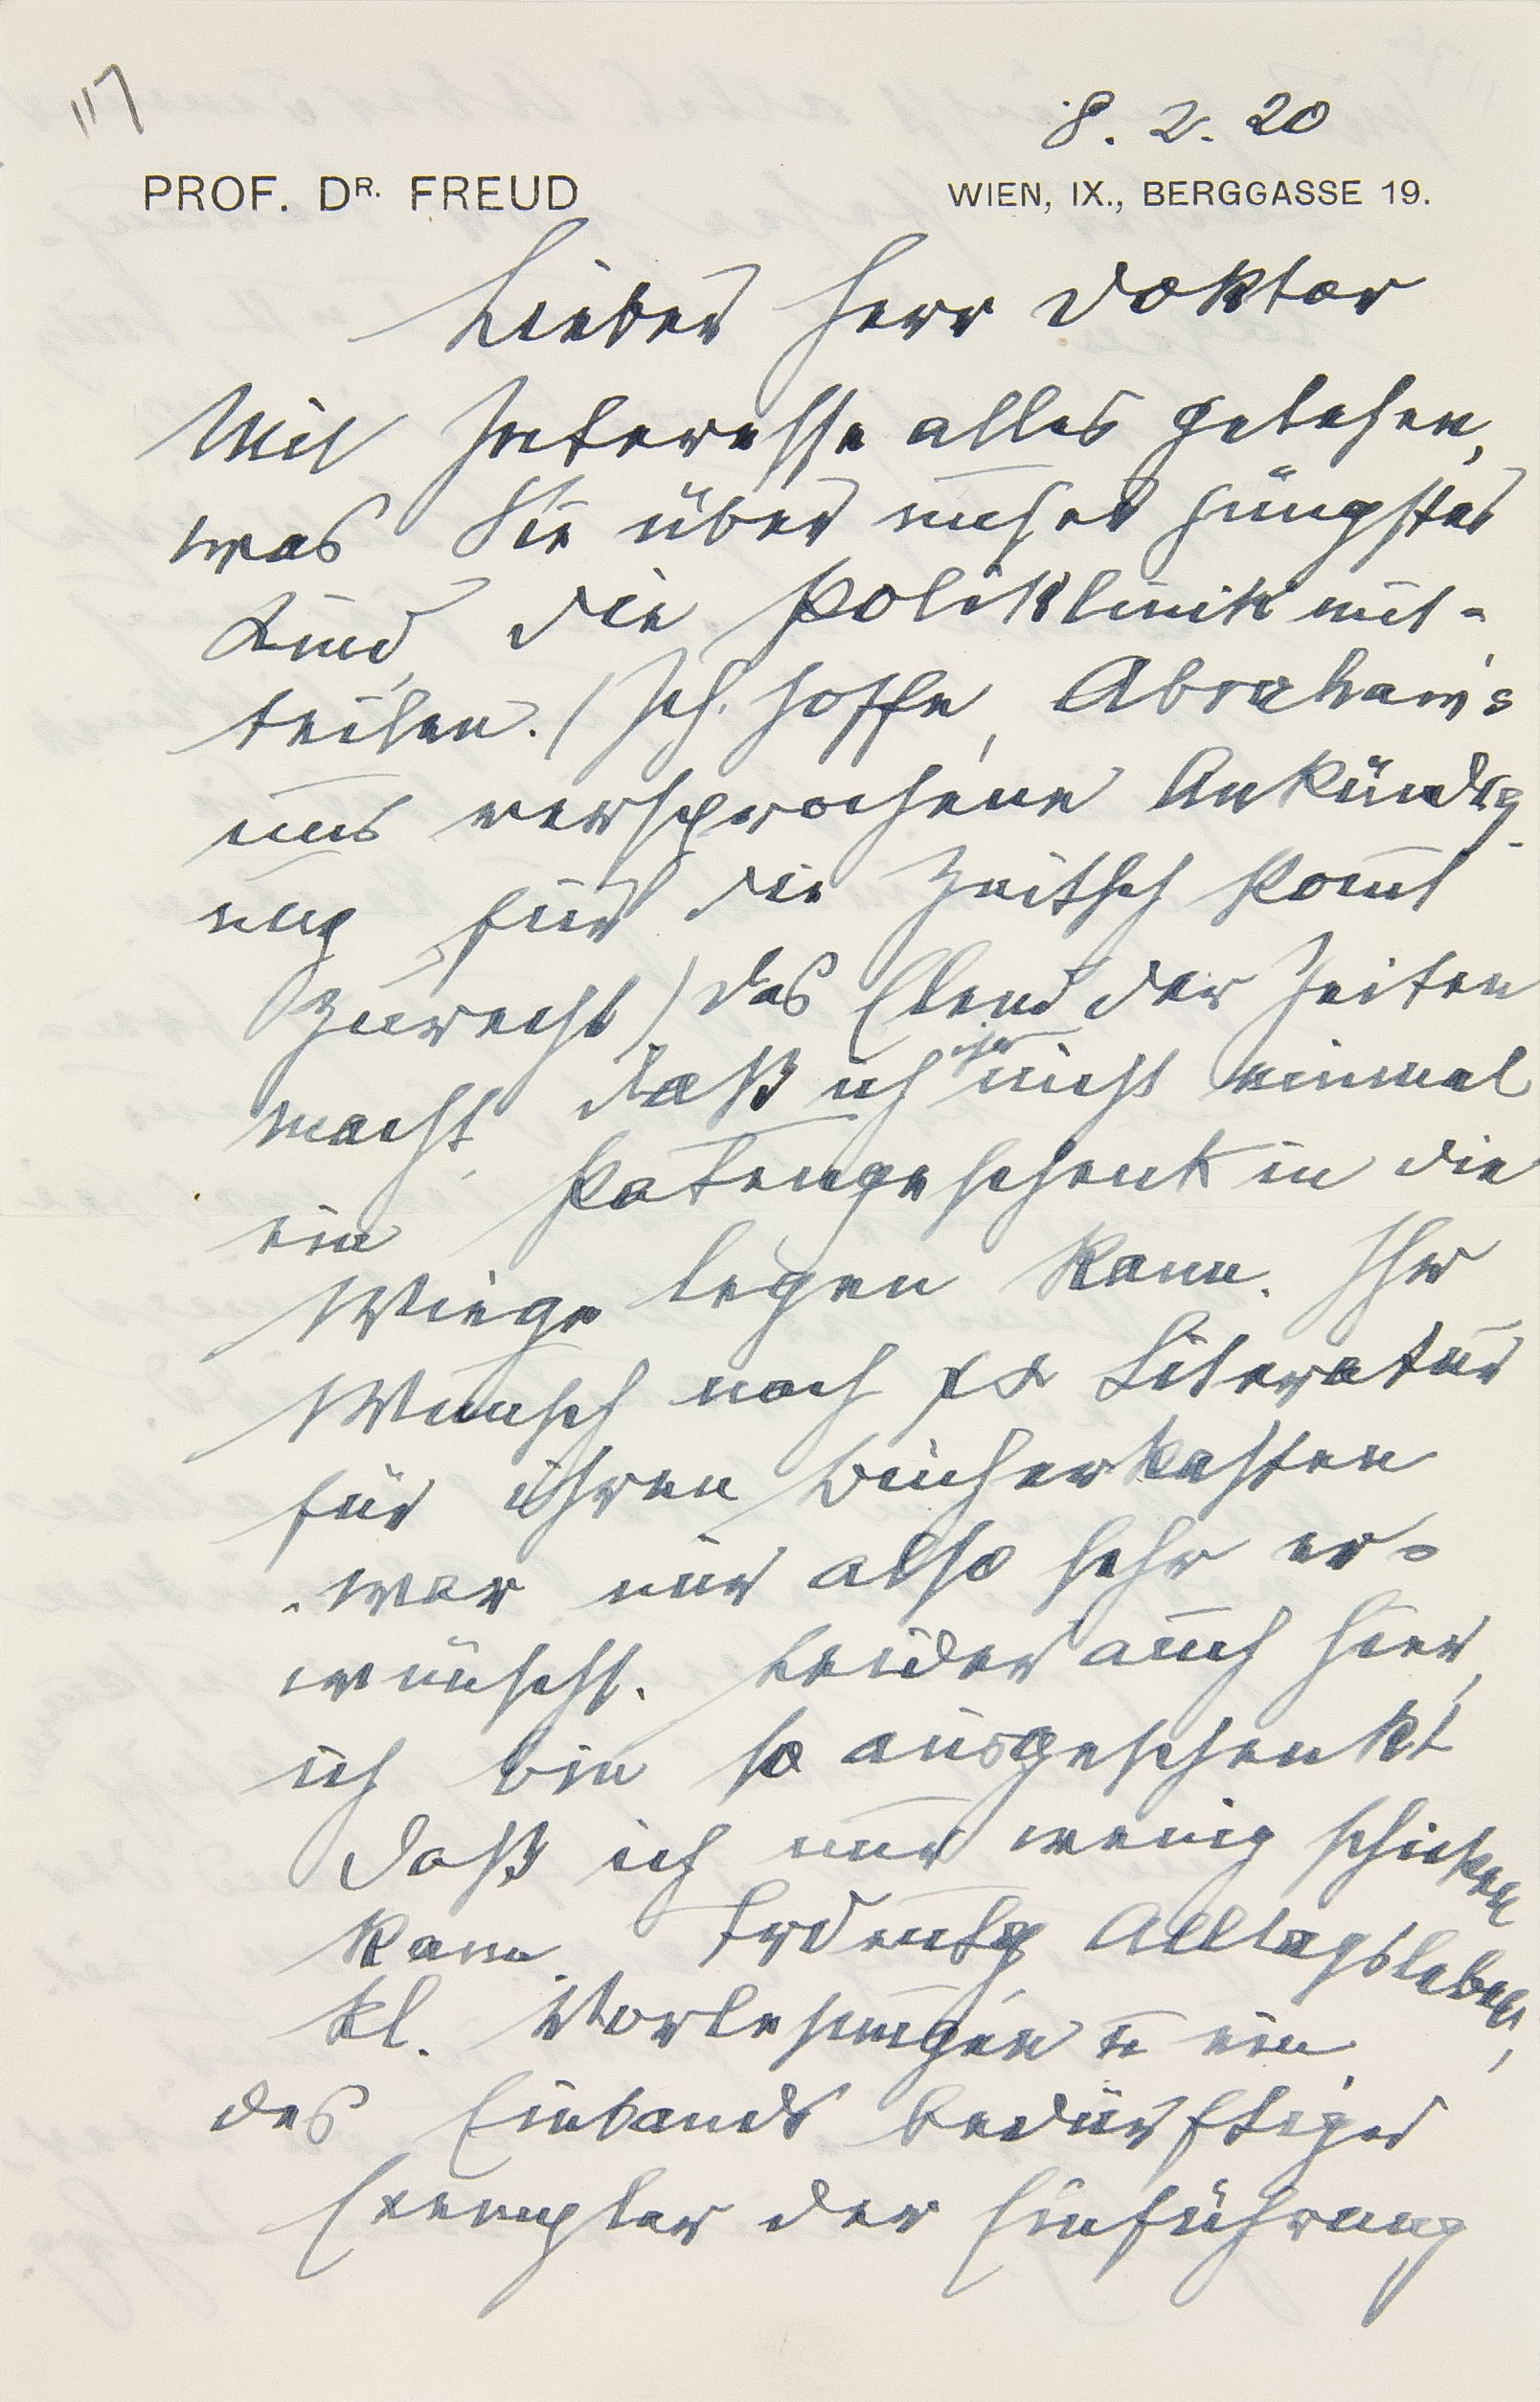 117
8. 2. 20
PROF. DR. FREUD
WIEN, IX., BERGGASSE 19.
Lieber Herr Doktor
Mit Interesse alles gelesen,
was Sie über unser jüngstes
Kind, die Poliklinik mit-
teilen. (Ich hoffe, Abraham's
uns versprochene Ankündig-
ung für die Zeitsch kom̅t
zurecht) Das Elend der Zeiten
macht, daß ich ihr nicht einmal
ein Patengeschenk in die
Wiege legen kann. Ihr
Wunsch nach ψα Literatur
für ihren Bücherkasten
war mir also sehr er-
wünscht. Leider auch hier,
ich bin so ausgeschenkt
daß ich nur wenig schicken
kann. Trdeutg Alltagsleben,
kl. Vorlesungen u ein
des Einbands bedürftiges
Exemplar der Einführung